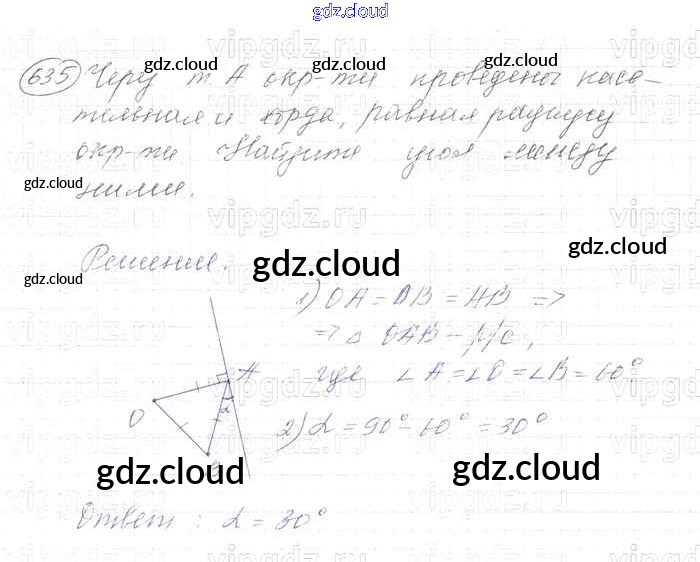 gdz.cloud
635 Через т. A окр-ти проведены каса-
gdz.cloud
gdz.cloud
тельная и хорда, равная радиусу
окр-ти. Найдите угол между
gdz.cloud
ними.
vipgdz.ru
Решение.
gdz.cloud
gdz.cloud
gdz.cloud
1) OA = OB = AB =>
=> △ OAB – р/с,
A
где ∠A = ∠O = ∠B = 60°
O
α
2) α = 90° - 60° = 30°
B
gdz.cloud
gdz.cloud
Ответ: α = 30°